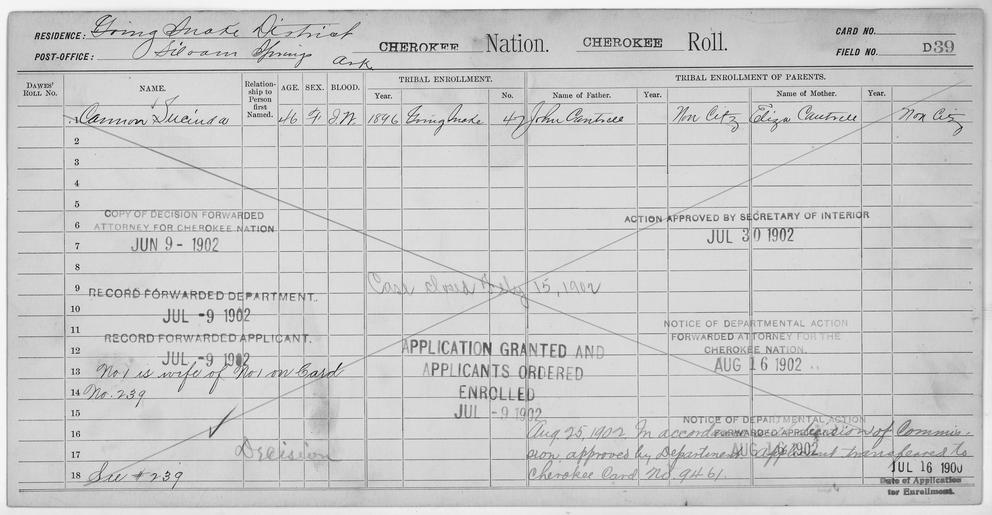 RESIDENCE: Going Snake District
POST-OFFICE: Siloam Springs Ark.
CHEROKEE Nation. CHEROKEE Roll.
CARD NO.
FIELD NO. D39
DAWES' ROLL NO. NAME. Relationship to Person first Named. AGE. SEX. BLOOD. TRIBAL ENROLLMENT. Year. No. TRIBAL ENROLLMENT OF PARENTS. Name of Father. Year. Name of Mother. Year.
1 Cannon Lucinda 46 F I.W. 1896 Going Snake 47 John Cantrell Non Citz Eliza Cantrell Non Citz
2
3
4
5
COPY OF DECISION FORWARDED
6 ATTORNEY FOR CHEROKEE NATION
7 JUN 9 - 1902
ACTION APPROVED BY SECRETARY OF INTERIOR
JUL 30 1902
8
9 Case closed July 15, 1902
RECORD FORWARDED DEPARTMENT.
10 JUL -9 1902
11
RECORD FORWARDED APPLICANT.
12 JUL -9 1902
NOTICE OF DEPARTMENTAL ACTION
FORWARDED ATTORNEY FOR THE
CHEROKEE NATION.
AUG 16 1902
APPLICATION GRANTED AND
APPLICANTS ORDERED
ENROLLED
JUL -9 1902
13 No 1 is wife of No 1 on Card
14 No. 239
15
NOTICE OF DEPARTMENTAL ACTION
FORWARDED APPLICANT
AUG 16 1902
16 Aug. 25, 1902. In accordance decision of Commis-
17 Decision sion approved by Department applicant transferred to
18 See # 239 Cherokee Card No. 9461.
JUL 16 1900
Date of Application
for Enrollment.